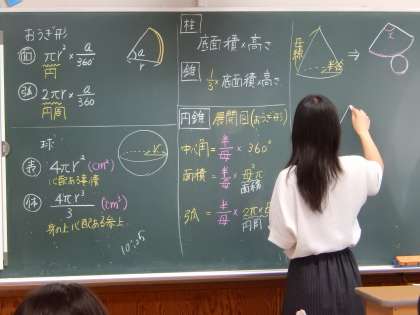 おうぎ形
面 πr² × a/360
円
弧 2πr × a/360
円周
a
r
球
表 4πr² (cm²)
心配ある事情
体 4πr³/3 (cm³)
身の上に心配ある参上
r
柱
底面積×高さ
錐
1/3×底面積×高さ
円錐 展開図(おうぎ形)
中心角=半/母×360°
面積=半/母×母²π
面積
弧=半/母×
円周
母線
半径
⇒